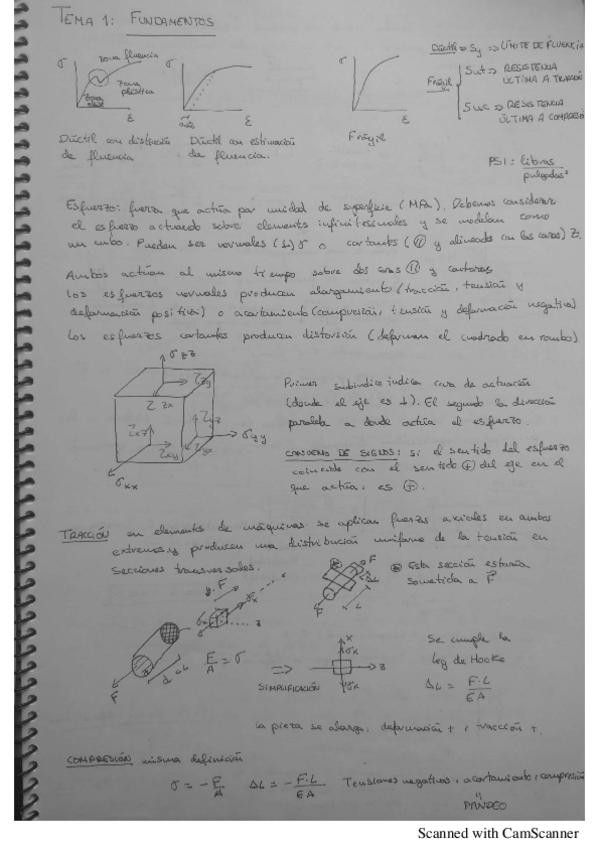 TEMA 1: FUNDAMENTOS
σ zona fluencia
zona plástica
ε
σ
ε
σ
ε
Dúctil => Sy => LÍMITE DE FLUENCIA
Frágil
Sut => RESISTENCIA ÚLTIMA A TRACCIÓN
Suc => RESISTENCIA ÚLTIMA A COMPRESIÓN
Dúctil con distinción de fluencia
Dúctil con estimación de fluencia.
Frágil
PSI: libras / pulgadas²
Esfuerzo: fuerza que actúa por unidad de superficie (MPa). Debemos considerar
el esfuerzo actuando sobre elementos infinitesimales y se modelan como
un cubo. Pueden ser normales (⊥) σ o cortantes (// y alineados con las caras) τ.
Ambos actúan al mismo tiempo sobre dos caras // y
los esfuerzos normales producen alargamiento (tracción, tensión y
deformación positiva) o acortamiento (compresión, tensión y deformación negativa)
Los esfuerzos cortantes producen distorsión (deforman el cuadrado en rombo)
σzz
τzy
τzx
τxz
τyz
τxy
τyx
σyy
σxx
Primer subíndice indica cara de actuación
(donde el eje es ⊥). El segundo la dirección
paralela a donde actúa el esfuerzo.
CONVENIO DE SIGNOS: si el sentido del esfuerzo
coincide con el sentido (+) del eje en el
que actúa, es (+).
TRACCIÓN en elementos de máquinas se aplican fuerzas axiales en ambos
extremos y producen una distribución uniforme de la tensión en
secciones transversales.
F
Esta sección estaría
sometida a F
ΔL
L
F
y F
σx
x
z
F
d
ΔL
F/A = σ
=>
SIMPLIFICACIÓN
x
σx
z
σx
Se cumple la
ley de Hooke
ΔL = F·L / EA
la pieza se alarga, deformación +, tracción +.
COMPRESIÓN misma definición
σ = - F/A ΔL = - F·L / EA Tensiones negativas, acortamiento, compresión
PANDEO
Scanned with CamScanner